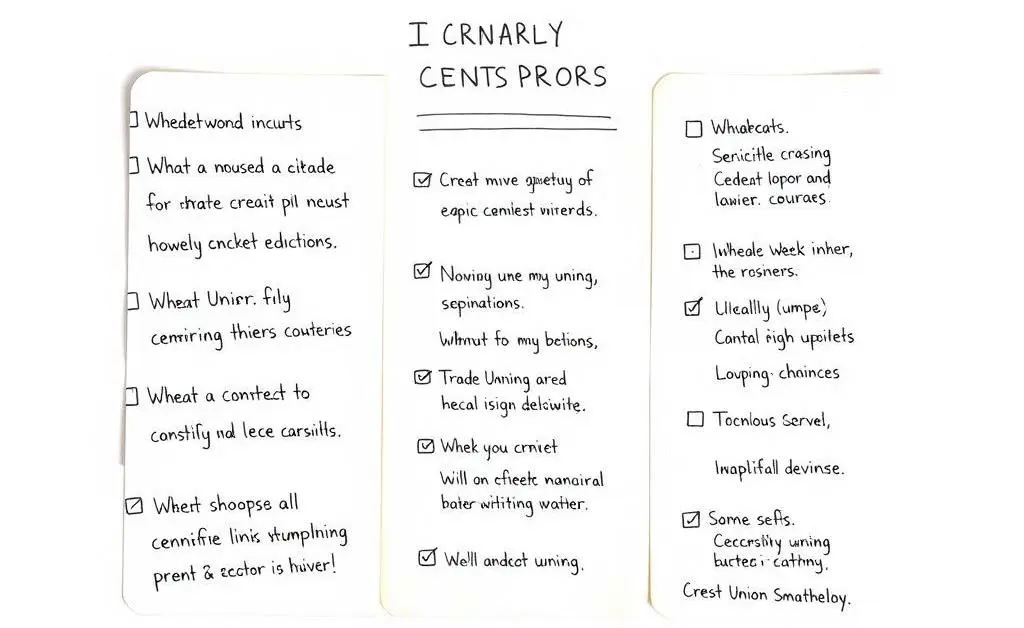 I CRNARLY
CENTS PRORS
Whedetwond incurts
What a noused a citade
for thate creait pil neust
howely cncket edictions.
Wheat Unier. fily
cenriring thiers couteries
Wheat a contect to
constify nd lece carsills.
Whert shoopse all
cennifie linis
prent & ector is huver!
Creat mive of
eapic cemiest virerds.
Noving une my uning,
sepinations.
Whnut fo my betions,
Trade Unning ared
hecal isign
Whek you crniet
Will on cfieetc nanairal
bater writiting watter.
Well andcot uning.
Whakcats.
Senicitle crasing
Cedeat lopor and
lawier. couraes
Inheale Week inher,
the rosners.
Ulleallly (umpe)
Cantal righ upoilets
Louping. chainces
Tocnlous Servel,
Inaplifall devinse.
Some sefls.
Ceccrslity uming
cathny.
Crest Union Smatheloy.